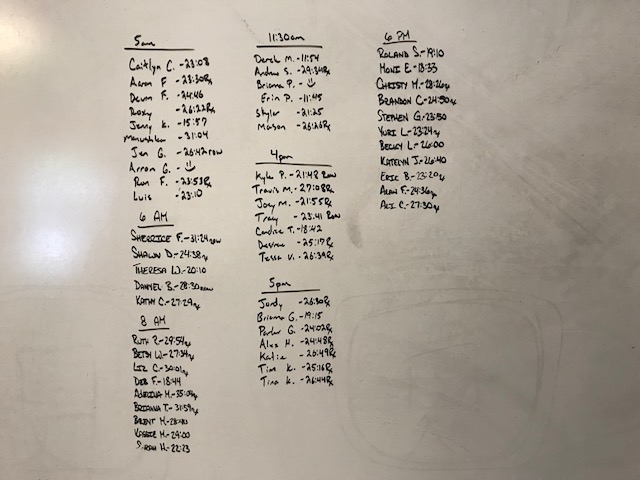 5am
Caitlyn C. - 23:08
Aaron F - 23:30Rx
Devin F. - 24:46
Roxy - 26:22Rx
Jenny K. - 15:57
- 31:04
Jen G. - 26:42 row
Arron G. - ☺
Ron F. - 23:53Rx
Luis - 23:10
6 AM
SHERRICE F. - 31:24 row
SHAWN D. - 24:38rx
THERESA W. - 20:10
DANYEL B. - 28:30 row
KATHY C. - 27:29rx
8 AM
RUTH P. - 29:54rx
BETSY W. - 27:34rx
LIZ C. - 30:01rx
DEB F. - 18:44
M. - 35:04rx
BRIANNA T. - 31:59rx
BRENT M. -
KASSIE M. - 29:00
SARAH H. - 22:23
11:30am
Derek M. - 11:54
Andrew S. - 29:34Rx
Brianna P. - ☺
Erin P. - 11:45
Skylar - 21:25
Mason - 26:26Rx
4pm
Kyle P. - 21:48 Row
Travis M. - 27:08Rx
Joey M. - 21:55Rx
Tracy - 23:41 Row
Candice T. - 18:42
Desiree - 25:17Rx
Tessa V. - 26:39Rx
5pm
Jordy - 26:30Rx
Brianna G. - 19:15
Parker G. - 24:02Rx
Alex H. - 24:48Rx
Katie - 20:49Rx
Tim K. - 25:16Rx
Tina K. - 26:44Rx
6 PM
ROLAND S. - 19:10
MONI E - 18:33
CHRISTY M. - 28:26rx
BRANDON C. - 24:50rx
STEPHEN G. - 23:50
YURI L - 23:24rx
BECKY L - 26:00
KATELYN J. - 26:40
ERIC B. - 23:20rx
ALAN F. - 24:36rx
ALI C. - 27:30rx